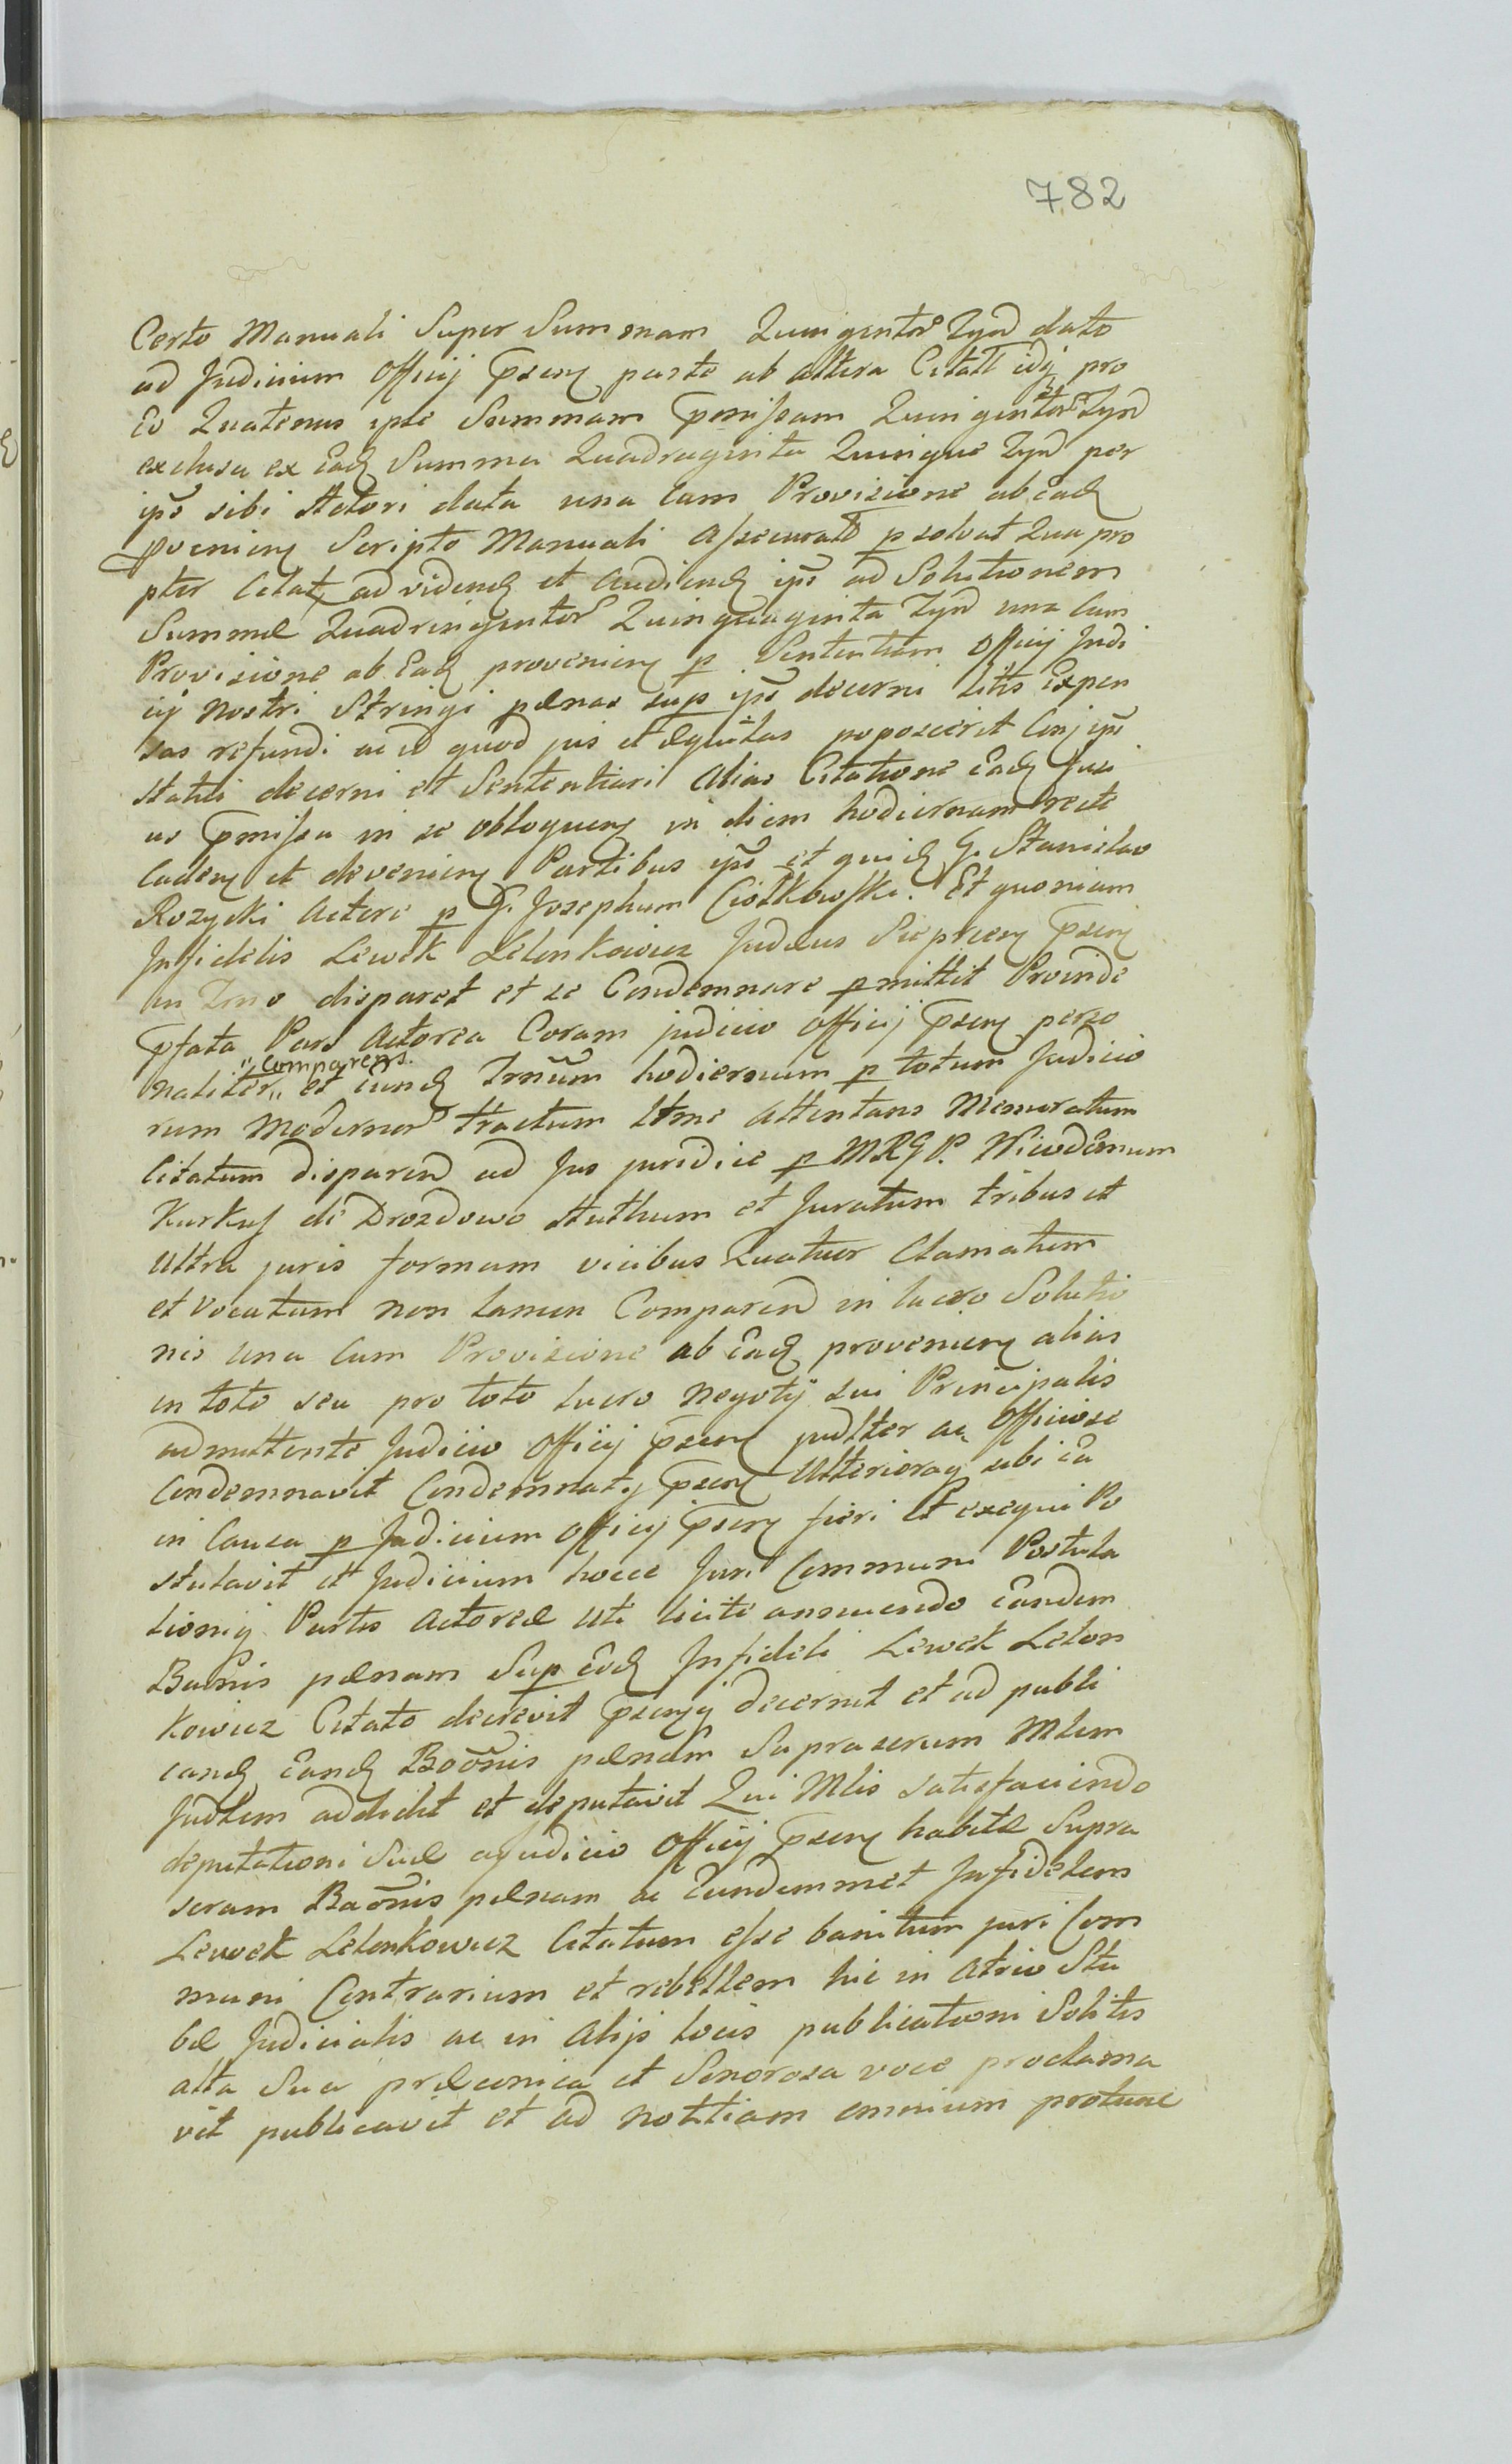 782
Certo Manuali Super Summam Quingentor Zynd dato
ad Judicium Officij psens parte ab altera Citatt idq pro
eo Quatenus ipse Summam pmissam Quingentor Zynd
exclusa ex Ead Summa Quadraginta Quinque Zynd per
ips sibi Actori data una cum Provisione ab ead
pveniens Scripto Manuali Assecurato p solvat Qua pro
pter Citat ad vidend et Audiend ips ad Solutionem
Summæ Quadringentor Quinquaginta Zynd una cum
Provisione ab Ead proveniens p Sententiam Officij Judi
cij Nostri Stringi pænas sup ips decerni Litis Expen
sas refundi ac id quod jus et Æquitas poposcerit Conj ips
statui decerni et Sententiari Alias Citatione Ead fusi
us pmissa in se obloquens in diem hodiernam recte
Cadens et deveniens Partibus ips et quid G. Stanislao
Rozycki Actore p G. Josephum Ciołkowski. Et quoniam
Infidelis Lewek Lelonkowicz Judæus psens
in Tmno disparet et se Condemnare pmittit Proinde
pfata Pars Actorea Coram judicio Officij psens perso
naliter „Comparens.„ et eund Trnum hodiernum p totum Judicio
rum Modernor tractum Ltme Attentans Memoratum
Citatum Disparend ad Jus juridice p MRGP. Nicodemum
Kurkus de Drozdowo Authum et Juratum tribus et
Ultra juris formam vicibus Quatuor Clamatum
et Vocatum non tamen Comparend in lucro Solutio
nis una Cum Provisione ab Ead proveniens alias
in toto seu pro toto lucro Negotij sui Principalis
admittente Judicio Officij psens judlter ac Officiose
Condemnavit Condemnatq psens Ulterioraq sibi ea
in Causa p Judicium Officij psens fieri et exequi Po
stulavit et Judicium hocce Juri Communi Postula
tioniq Partis Actoreæ Uti licite annuendo Eandem
Banis pænam Sup Eod Infideli Lewek Lelon
kowicz Citato decrevit psensq decernit et ad publi
cand Eand Baonis pænam Suprascrum Mlem
Judlem addidit et deputavit Qui Mlis satisfaciendo
deputationi Suæ a judicio Officij psens habitæ Supra
scram Baonis pænam ac Eundemmet Infidelem
Lewek Lelonkowicz Citatum esse banitum juri Com
muni Contrarium et rebellem hic in Atrio Stu
bæ Judicialis ac in Alijs locis publicationi Solitis
alta Sua præconica et Sonorosa voce proclama
vit publicavit et ad notitiam omnium protunc